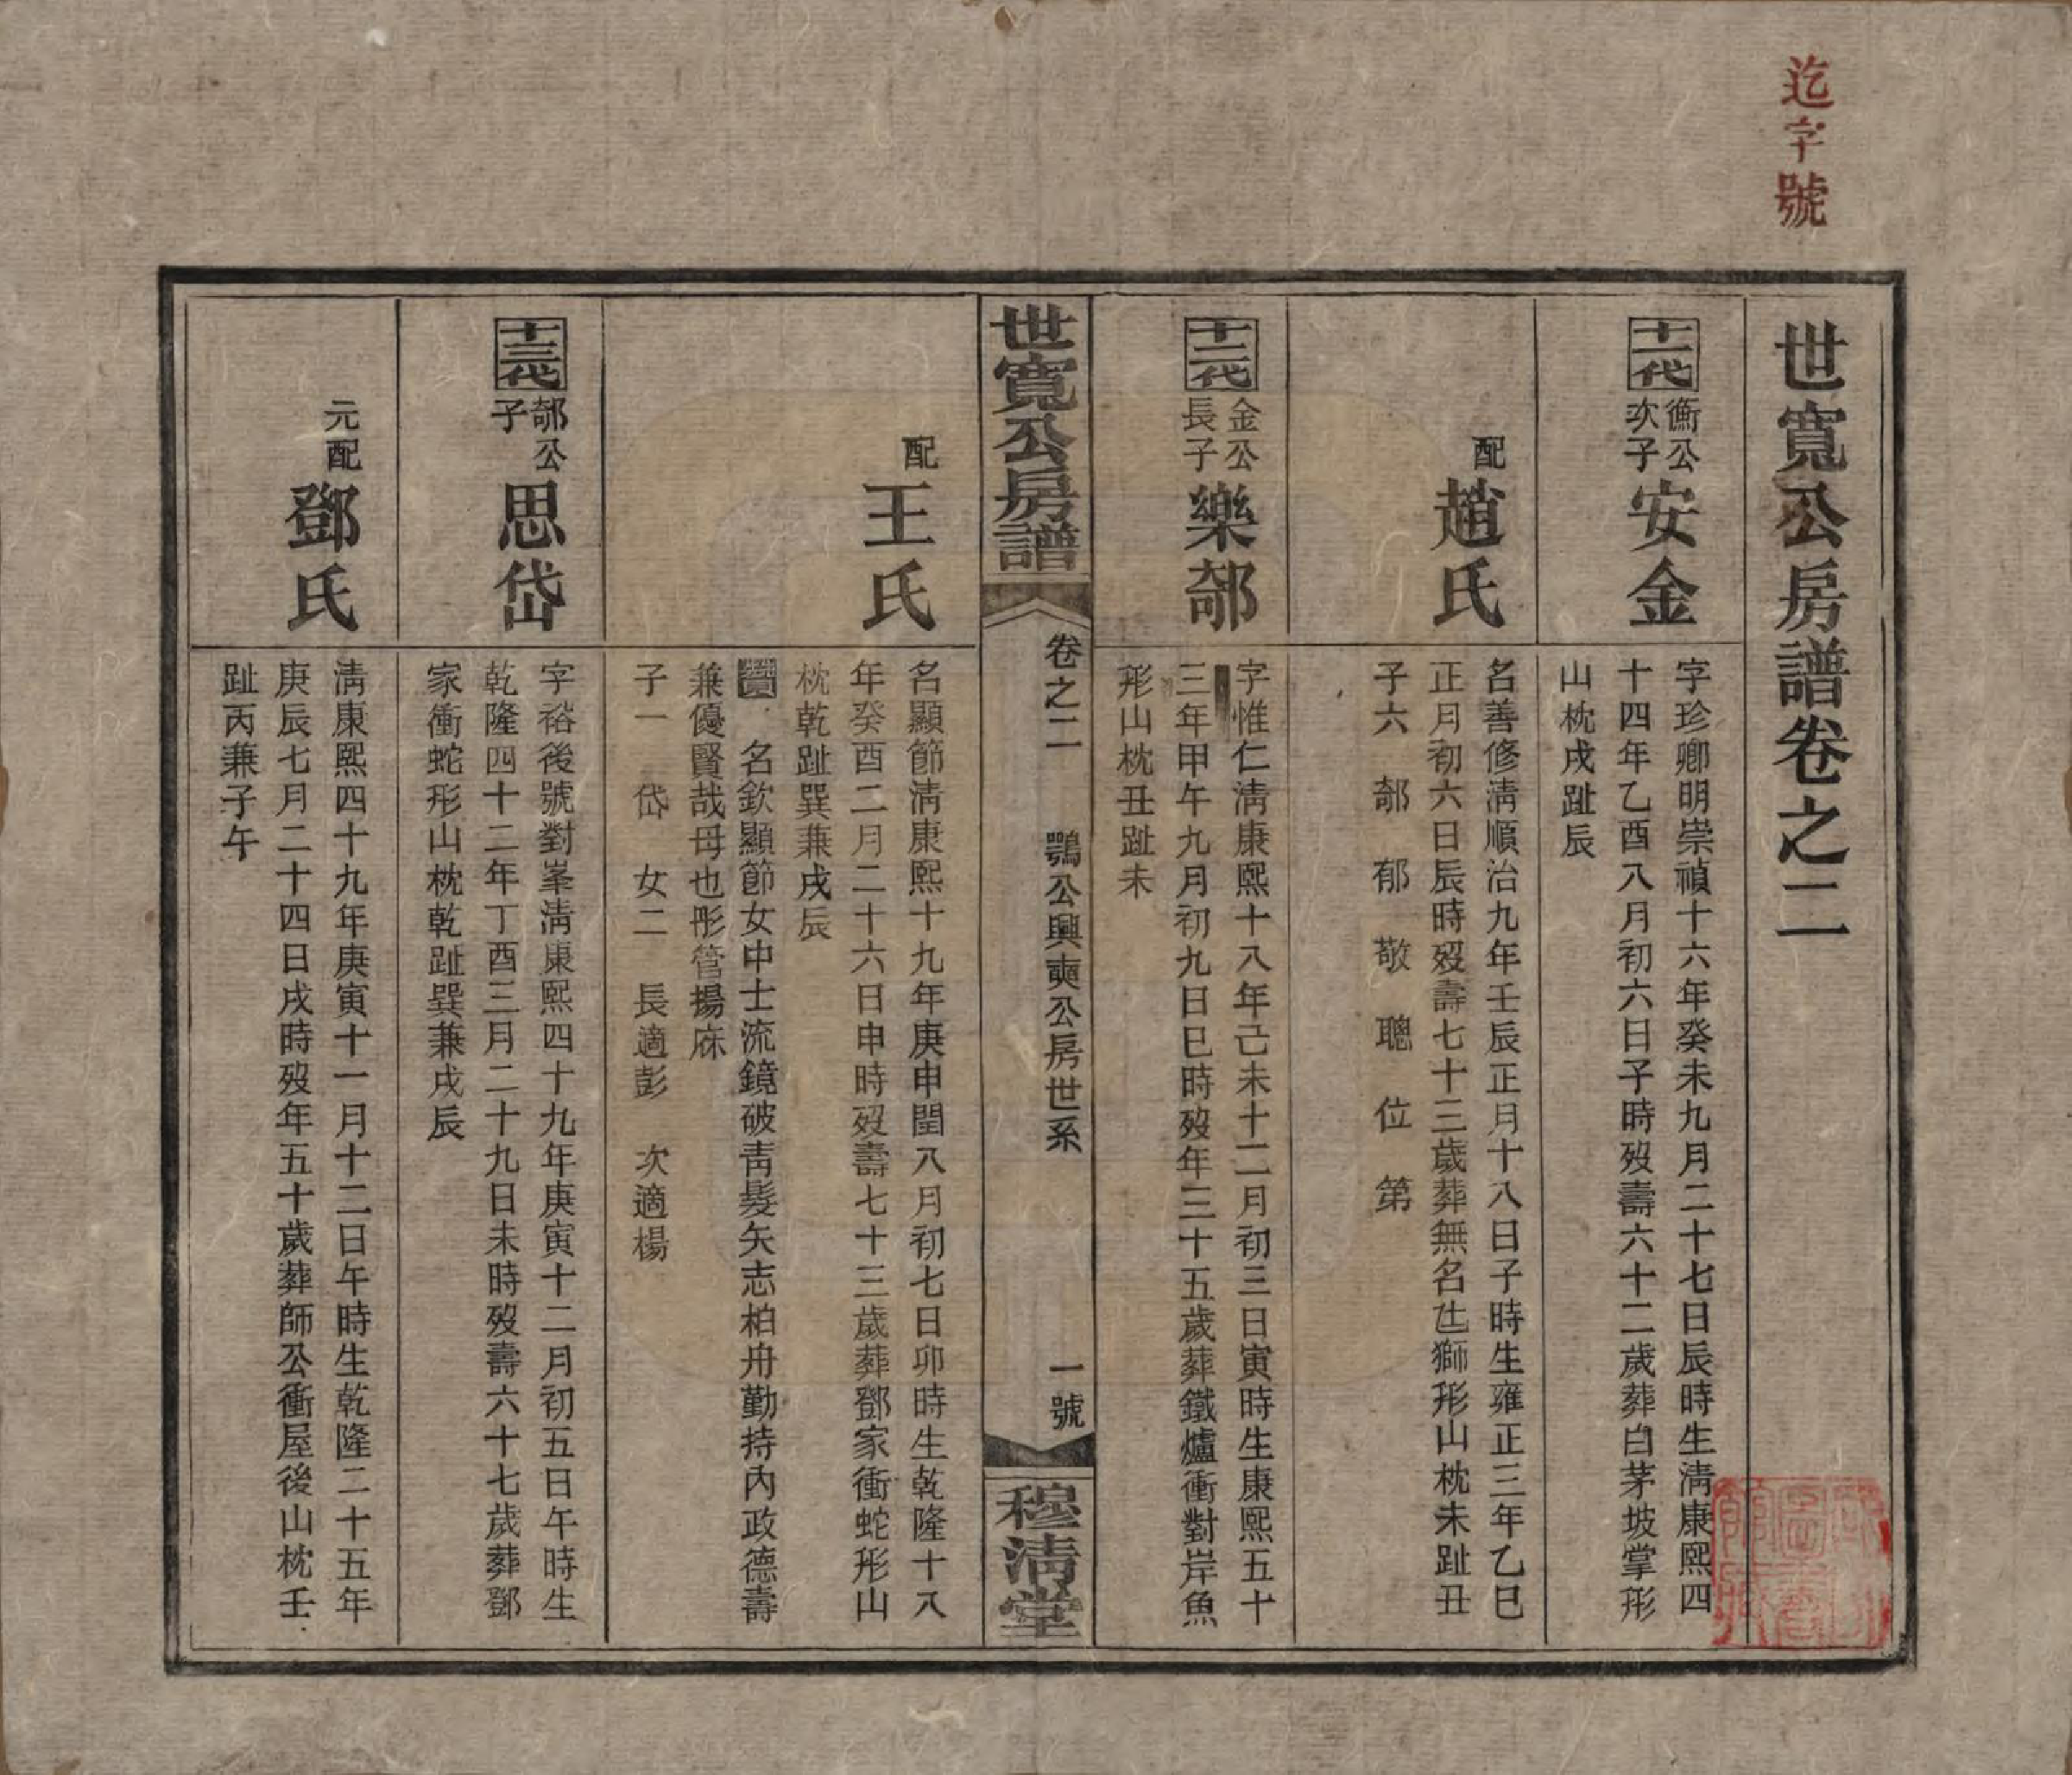 迄字號
世寬公房譜卷之二
十一代
衡公
次子
安金
字珍卿明崇禎十六年癸未九月二十七日辰時生淸康熙四
十四年乙酉八月初六日子時歿壽六十二歲葬白茅坡掌形
山枕戌趾辰
配
趙氏
名善修淸順治九年壬辰正月十八日子時生雍正三年乙巳
正月初六日辰時歿壽七十三歲葬無名冚獅形山枕未趾丑
子六 郩 郁 敬 聰 位 第
十二代
金公
長子
樂郩
字惟仁淸康熙十八年己未十二月初三日寅時生康熙五十
三年甲午九月初九日巳時歿年三十五歲葬鐵爐衝對岸魚
形山枕丑趾未
世寬公房譜
卷之二 鶚公興奭公房世系
一號
穆淸堂
配
王氏
名顯節淸康熙十九年庚申閏八月初七日卯時生乾隆十八
年癸酉二月二十六日申時歿壽七十三歲葬鄧家衝蛇形山
枕乾趾巽兼戌辰
贊 名欽顯節女中士流鏡破靑髮矢志柏舟勤持內政德壽
兼優賢哉母也彤管揚庥
子一 岱 女二 長適彭 次適楊
十三代
郩公
子
思岱
字裕後號對峯淸康熙四十九年庚寅十二月初五日午時生
乾隆四十二年丁酉三月二十九日未時歿壽六十七歲葬鄧
家衝蛇形山枕乾趾巽兼戌辰
元配
鄧氏
淸康熙四十九年庚寅十一月十二日午時生乾隆二十五年
庚辰七月二十四日戌時歿年五十歲葬師公衝屋後山枕壬
趾丙兼子午